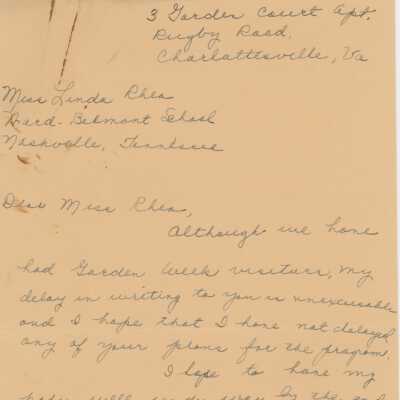 3 Garden Court Apt.
Rugby Road,
Charlottesville, Va
Miss Linda Rhea
Ward-Belmont School
Nashville, Tennessee
Dear Miss Rhea,
Although we have
had Garden Week visitors, my
delay in writing to you is unexcusable
and I hope that I have not delayed
any of your plans for the program.
I hope to have my
paper well under way by the end